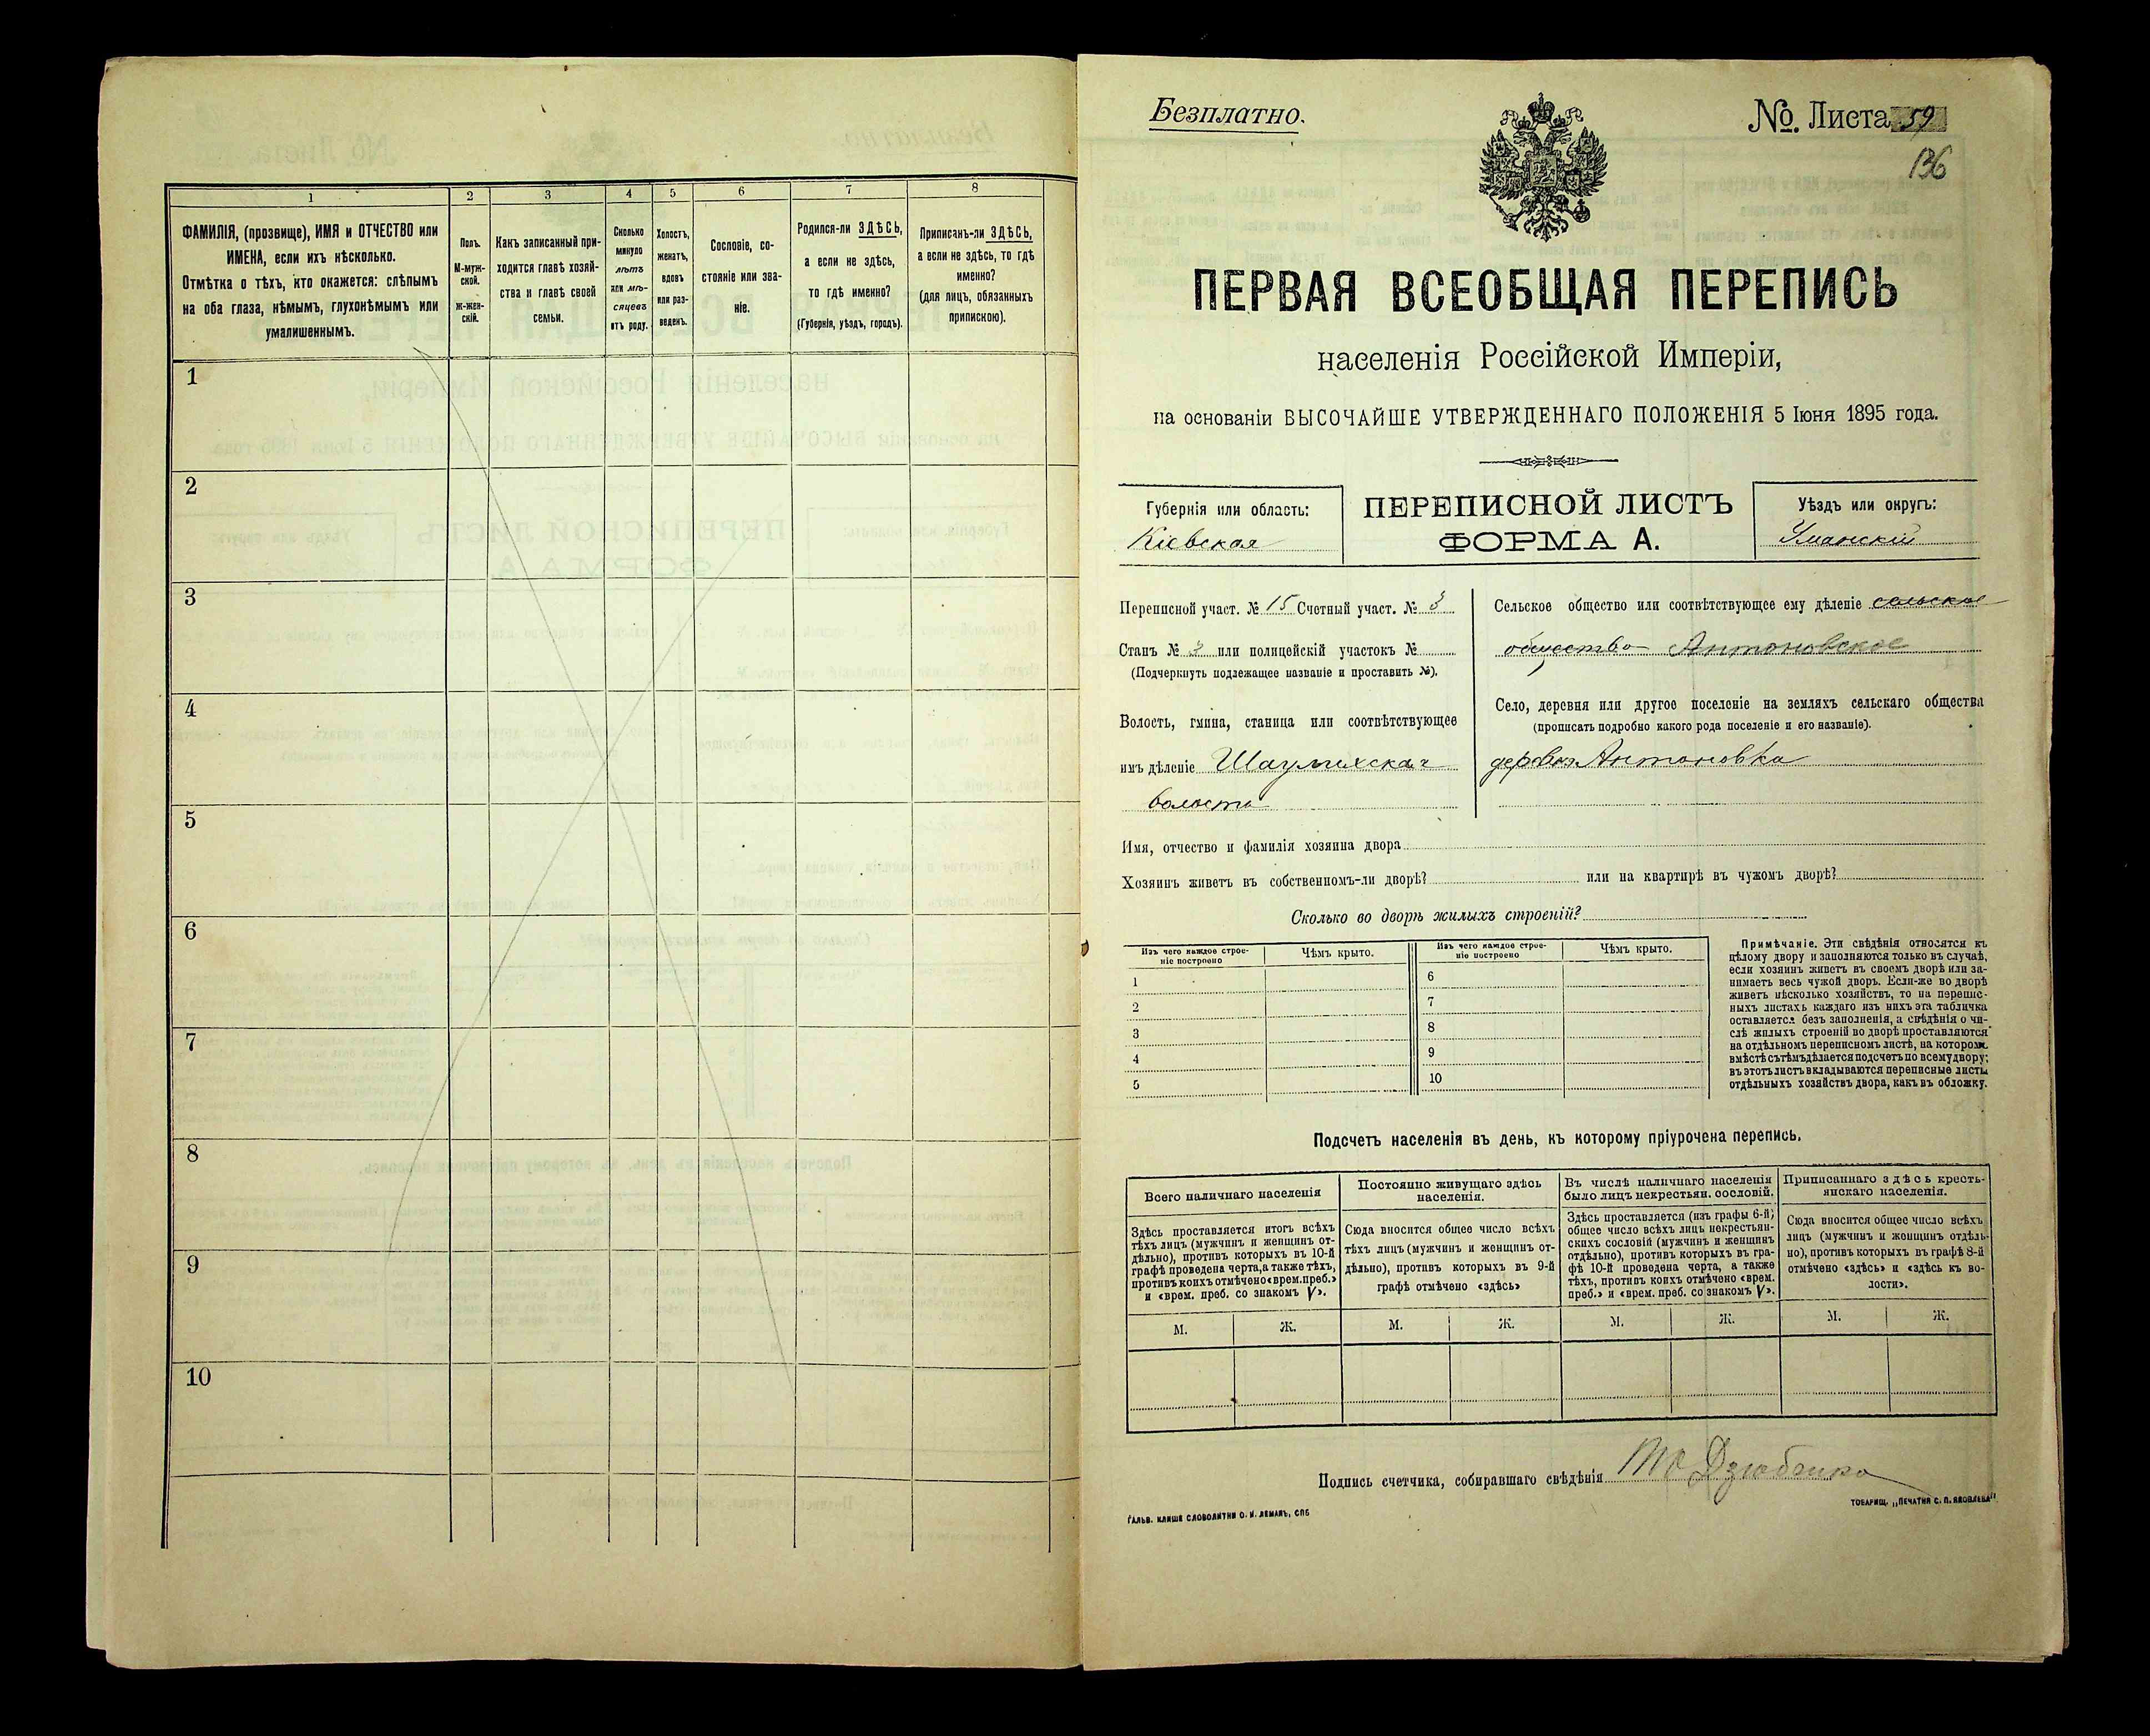 1
2
3
4
5
6
7
8
ФАМИЛІЯ, (прозвище), ИМЯ и ОТЧЕСТВО или
ИМЕНА, если ихъ нѣсколько.
Отмѣтка о тѣхъ, кто окажется: слѣпымъ
на оба глаза, нѣмымъ, глухонѣмымъ или
умалишеннымъ.
Полъ.
М-муж-
ской.
Ж-жен-
скій.
Какъ записанный при-
ходится главѣ хозяй-
ства и главѣ своей
семьи.
Сколько
минуло
лѣтъ
или мѣ-
сяцевъ
отъ роду.
Холостъ,
женатъ,
вдовъ
или раз-
веденъ.
Сословіе, со-
стояніе или зва-
ніе.
Родился-ли ЗДѢСЬ,
а если не здѣсь,
то гдѣ именно?
(Губернія, уѣздъ, городъ).
Приписанъ-ли ЗДѢСЬ,
а если не здѣсь, то гдѣ
именно?
(для лицъ, обязанныхъ
припискою).
1
2
3
4
5
6
7
8
9
10
Безплатно.
№. Листа 59
136
ПЕРВАЯ ВСЕОБЩАЯ ПЕРЕПИСЬ
населенія Россійской Имперіи,
на основаніи ВЫСОЧАЙШЕ УТВЕРЖДЕННАГО ПОЛОЖЕНІЯ 5 Іюня 1895 года.
Губернія или область:
Кіевская
ПЕРЕПИСНОЙ ЛИСТЪ
ФОРМА А.
Уѣздъ или округъ:
Уманскій
Переписной участ. № 15 Счетный участ. № 3
Станъ № 3 или полицейскій участокъ №
(Подчеркнуть подлежащее названіе и проставить №).
Волость, гмина, станица или соотвѣтствующее
имъ дѣленіе
волость
Сельское общество или соотвѣтствующее ему дѣленіе сельское
общество Антоновское
Село, деревня или другое поселеніе на земляхъ сельскаго общества
(прописать подробно какого рода поселеніе и его названіе).
деревня Антоновка
Имя, отчество и фамилія хозяина двора
Хозяинъ живетъ въ собственномъ-ли дворѣ? или на квартирѣ въ чужомъ дворѣ?
Сколько во дворѣ жилыхъ строеній?
Изъ чего каждое строе-
ніе построено
Чѣмъ крыто.
Изъ чего каждое строе-
ніе построено
Чѣмъ крыто.
1
2
3
4
5
6
7
8
9
10
Примѣчаніе. Эти свѣдѣнія относятся къ
цѣлому двору и заполняются только въ случаѣ,
если хозяинъ живетъ въ своемъ дворѣ или за-
нимаетъ весь чужой дворъ. Если-же во дворѣ
живетъ нѣсколько хозяйствъ, то на перепис-
ныхъ листахъ каждаго изъ нихъ эта табличка
оставляется безъ заполненія, а свѣдѣнія о чи-
слѣ жилыхъ строеній во дворѣ проставляются
на отдѣльномъ переписномъ листѣ, на которомъ
вмѣстѣ съ тѣмъ дѣлается подсчетъ по всему двору;
въ этотъ листъ вкладываются переписные листы
отдѣльныхъ хозяйствъ двора, какъ въ обложку.
Подсчетъ населенія въ день, къ которому пріурочена перепись.
Всего наличнаго населенія
Здѣсь проставляется итогъ всѣхъ
тѣхъ лицъ (мужчинъ и женщинъ от-
дѣльно), противъ которыхъ въ 10-й
графѣ проведена черта, а также тѣхъ,
противъ коихъ отмѣчено «врем. преб.»
и «врем. преб. со знакомъ V».
Постоянно живущаго здѣсь
населенія.
Сюда вносится общее число всѣхъ
тѣхъ лицъ (мужчинъ и женщинъ от-
дѣльно), противъ которыхъ въ 9-й
графѣ отмѣчено «здѣсь»
Въ числѣ наличнаго населенія
было лицъ некрестьян. сословій.
Здѣсь проставляется (изъ графы 6-й)
общее число всѣхъ лицъ некрестьян-
скихъ сословій (мужчинъ и женщинъ
отдѣльно), противъ которыхъ въ гра-
фѣ 10-й проведена черта, а также
тѣхъ, противъ коихъ отмѣчено «врем.
преб.» и «врем. преб. со знакомъ V».
Приписаннаго здѣсь кресть-
янскаго населенія.
Сюда вносится общее число всѣхъ
лицъ (мужчинъ и женщинъ отдѣль-
но), противъ которыхъ въ графѣ 8-й
отмѣчено «здѣсь» и «здѣсь къ во-
лости».
М. Ж. М. Ж. М. Ж. М. Ж.
Подпись счетчика, собиравшаго свѣдѣнія Дзюбенко
ГАЛЬВ. КЛИШЕ СЛОВОЛИТНИ О. И. ЛЕМАНЪ, СПБ
ТОВАРИЩ. „ПЕЧАТНЯ С. П. ЯКОВЛЕВА“